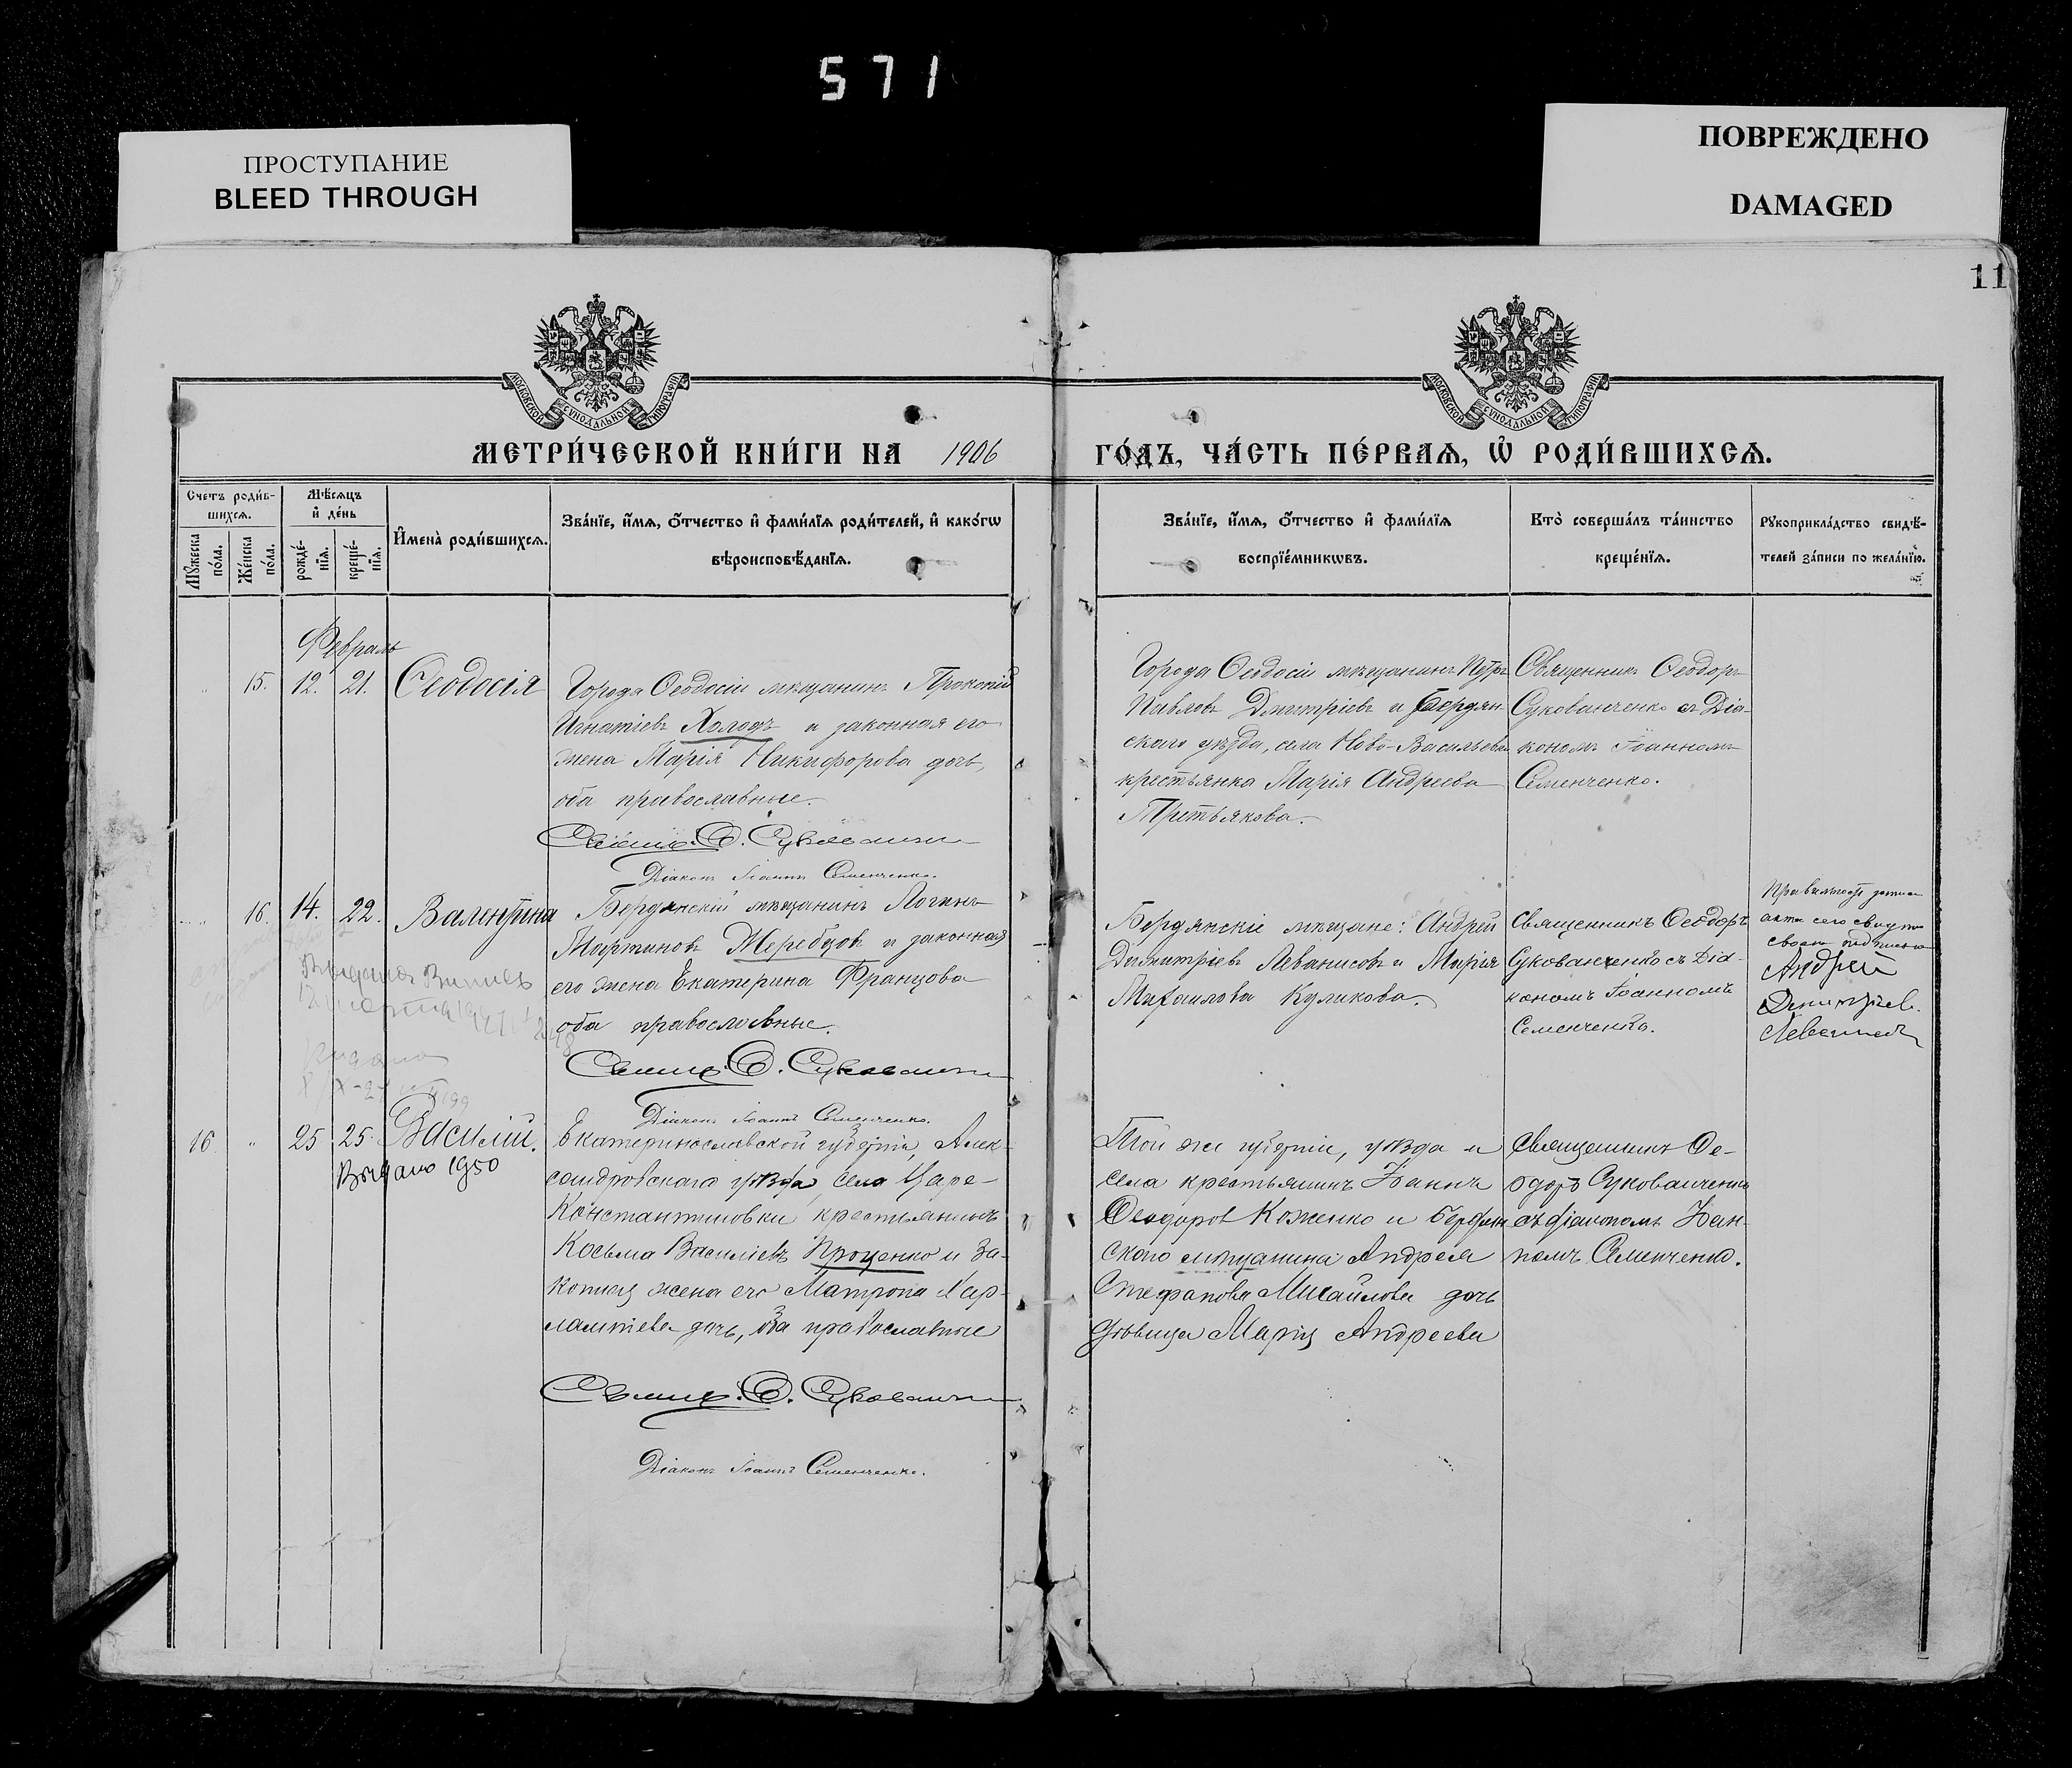 571
ПРОСТУПАНИЕ
BLEED THROUGH
ПОВРЕЖДЕНО
DAMAGED
11
МОСКОВСКОЙ СѴНОДАЛЬНОЙ ТИПОГРАФІИ
МОСКОВСКОЙ СѴНОДАЛЬНОЙ ТИПОГРАФІИ
МЕТРИ́ЧЕСКОЙ КНИ́ГИ НА 1906 ГО́ДЪ, ЧА́СТЬ ПЕ́РВАѦ, Ѡ҆ РОДИ́ВШИХСѦ.
Счетъ роди́в-
шихсѧ.
Мꙋжеска по́ла.
Же́нска по́ла.
Мѣ́сѧцъ
и҆ де́нь
рожде́-
нїѧ.
креще́-
нїѧ.
И҆мена̀ роди́вшихсѧ.
Зва́нїе, и҆́мѧ, ѻ҆́тчество и҆ фами́лїѧ роди́телей, и҆ како́гѡ
вѣроисповѣ́данїѧ.
Зва́нїе, и҆́мѧ, ѻ҆́тчество и҆ фами́лїѧ
воспрїе́мникѡвъ.
Кто̀ соверша́лъ та́инство
креще́нїѧ.
Рꙋкоприкла́дство свидѣ́-
телей за́писи по жела́нїю.
Февраль
15. 12. 21. Ѳеодосія
Города Ѳеодосіи мѣщанинъ Прокопій
Игнатіевъ Холодъ и законная его
жена Марія Никифорова дочь,
оба православные.
Діаконъ Іоаннъ Семенченко.
Города Ѳеодосіи мѣщанинъ Петръ
Павловъ Дмитріевъ и Бердян-
скаго уѣзда, села Ново-Васильевки
крестьянка Марія Андреева
Третьякова.
Священникъ Ѳеодоръ
Сукованченко съ Діа-
кономъ Іоанномъ
Семенченко.
16. 14. 22. Валентина
Бердянскій мѣщанинъ Логинъ
Мартиновъ Жеребцовъ и законная
его жена Екатерина Францова
оба православные.
Діаконъ Іоаннъ Семенченко.
Бердянскіе мѣщане: Андрей
Димитріевъ Леванисовъ и Марія
Михаилова Куликова.
Священникъ Ѳеодоръ
Сукованченко съ Діа-
кономъ Іоанномъ
Семенченко.
Андрей
16 " 25 25 Василій.
Выдано 1950
Екатеринославской губерніи, Алек-
сандровскаго уѣзда, села Царе-
Константиновки крестьянинъ
Косьма Василіевъ Проценко и за-
конная жена его Матрона Хар-
лампіева дочь, оба православные
Діаконъ Іоаннъ Семенченко.
Той же губерніи, уѣзда и
села крестьянинъ Іоаннъ
Ѳеодоров Коженко и Бердян-
скаго мѣщанина Андрея
Стефанова Михайлова дочь
дѣвица Марія Андреева
Священникъ Ѳе-
одоръ Сукованченко
съ діакономъ Іоан-
номъ Семенченко.